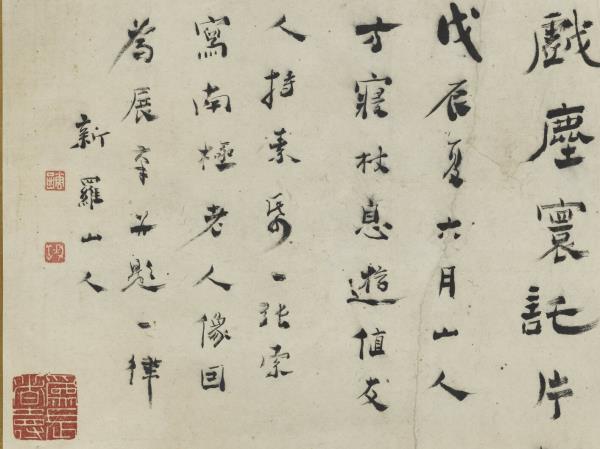 戲塵寰託片
戊辰夏六月山人
方寢杖息遊值友
人持素帋一張索
寫南極老人像因
為展筆并題一律
新羅山人